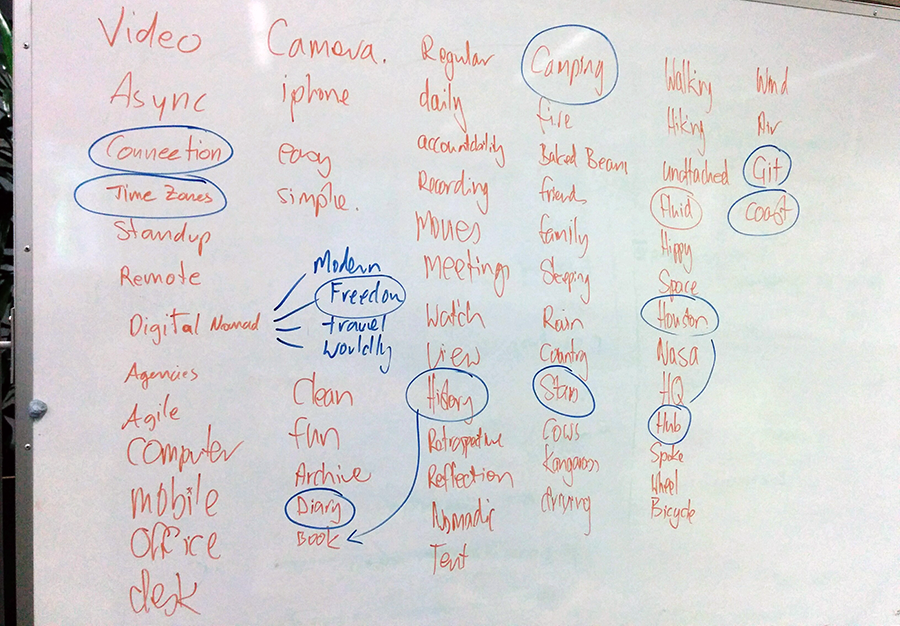 Video
Async
Connection
Time Zones
Standup
Remote
Digital Nomad
Agencies
Agile
Computer
mobile
office
desk
Camera.
iphone
easy
simple.
Modern
Freedom
travel
Worldly
Clean
fun
Archive
Diary
Book
Regular
daily
accountability
Recording
Movies
Meetings
Watch
View
History
Retrospective
Reflection
Nomadic
Tent
Camping
fire
Baked Beans
friends
family
Sleeping
Rain
Country
Stars
Cows
Kangaroos
driving
Walking
Hiking
unattached
Fluid
Hippy
Space
Houston
Nasa
HQ
Hub
Spoke
Wheel
Bicycle
Wind
Air
Git
Coast